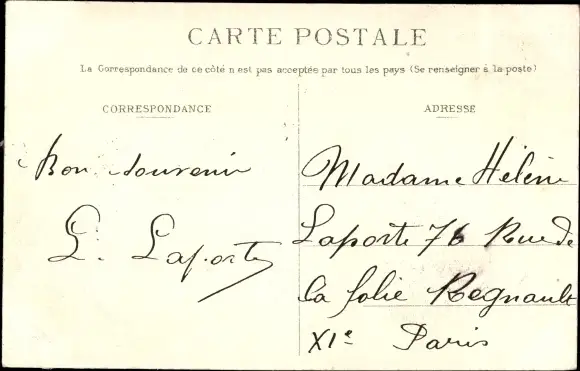 CARTE POSTALE
La Correspondance de ce côté n est pas acceptée par tous les pays (Se renseigner à la poste)
CORRESPONDANCE
Bon souvenir
L. Laporte
ADRESSE
Madame Hélène
Laporte 76 Rue de
la folie Regnault
XIe Paris